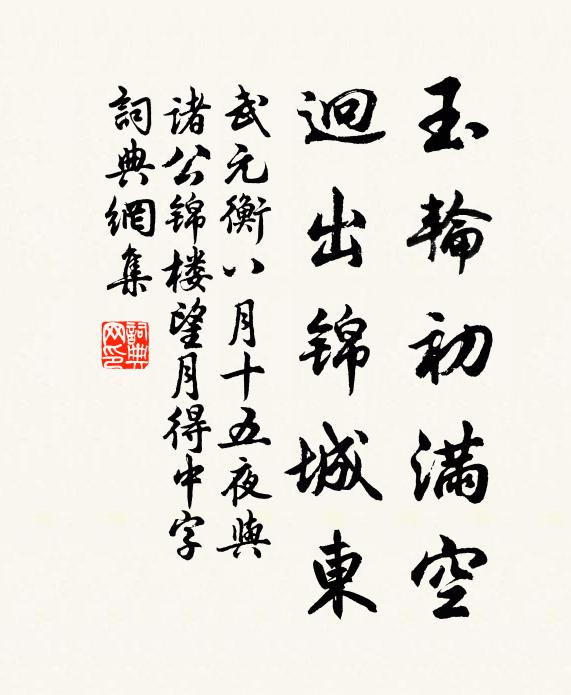 玉輪初滿空
迥出錦城東
武元衡八月十五夜與
諸公錦楼望月得中字
詞典網集
詞典网印